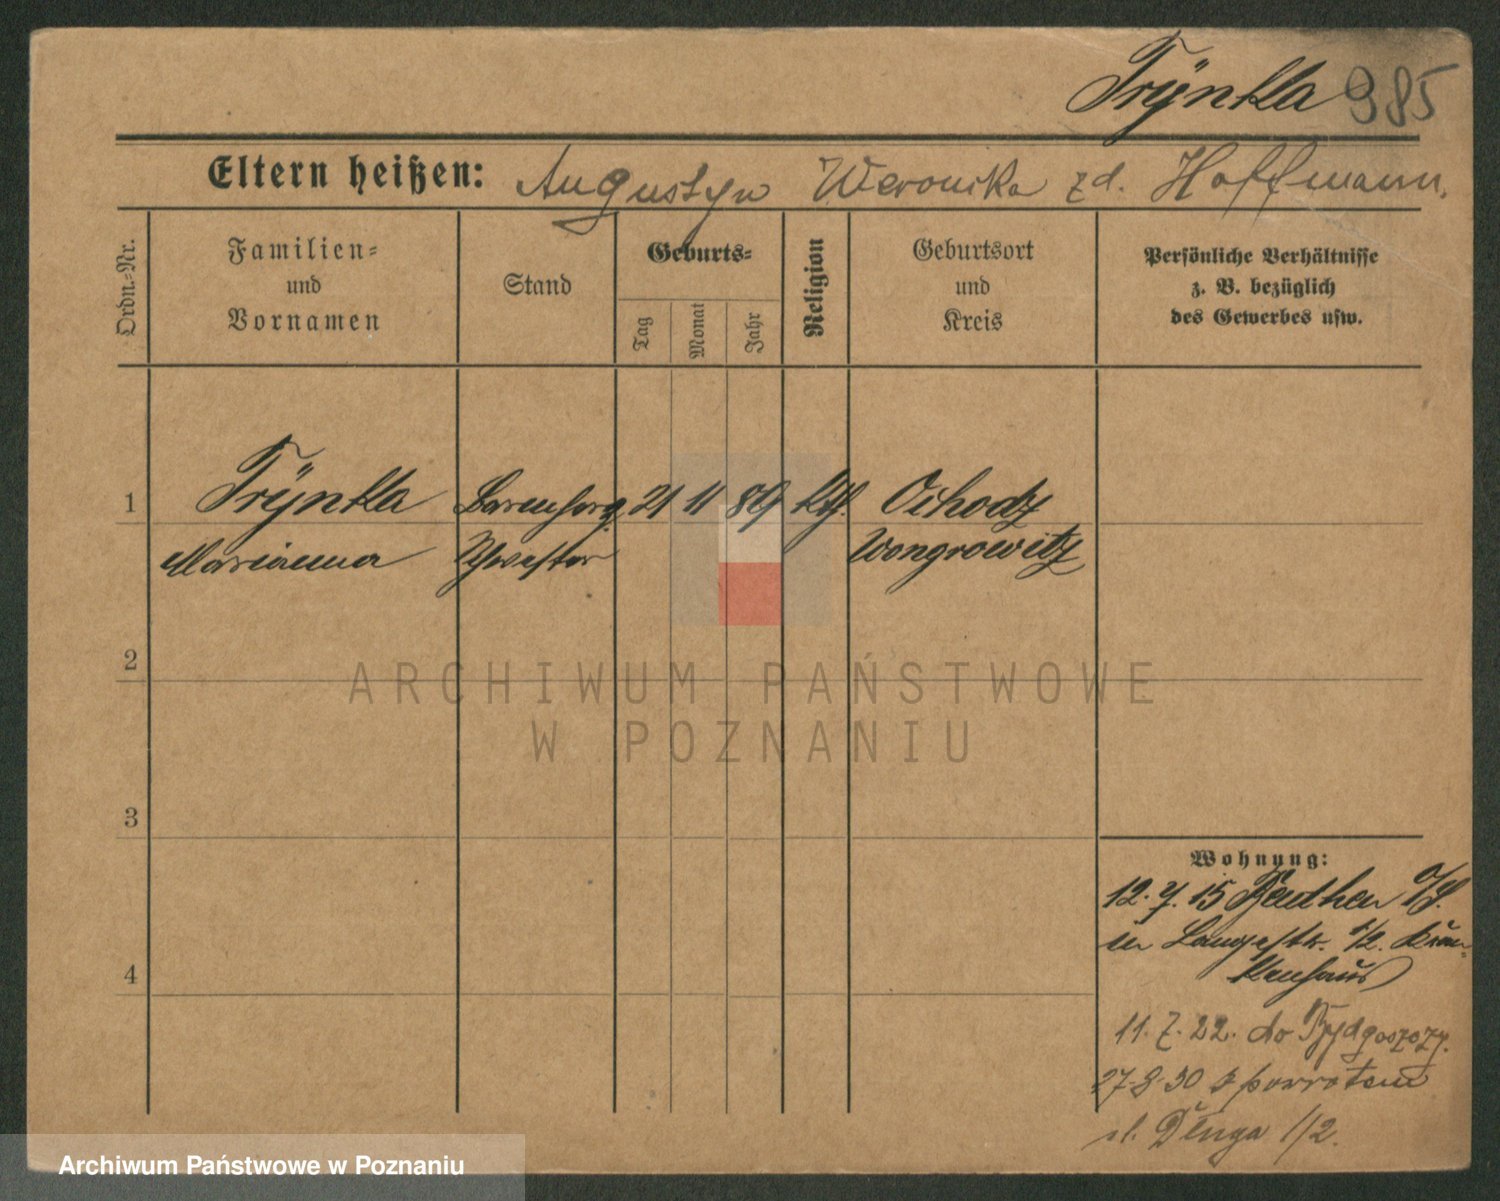 Trÿnka 985
Eltern heißen: Augustyn Weronika zd. Hoffmann.
Ordn.-Nr.
Familien-
und
Vornamen
Stand
Geburts-
Tag
Monat
Jahr
Religion
Geburtsort
und
Kreis
Persönliche Verhältnisse
z. B. bezüglich
des Gewerbes usw.
1 Trÿnka Barmherzg 21 11 89 Kth. Ochodz
Marianna Schwester Wongrowitz
2
3
4
Wohnung:
12. 7. 15 Beuthen O/S.
in Langestr. 1/2. Kran-
kenhaus
11. 7. 22. do Bydgoszczy.
27-8-30 z powrotem
ul. Długa 1/2.
ARCHIWUM PAŃSTWOWE
W POZNANIU
Archiwum Państwowe w Poznaniu